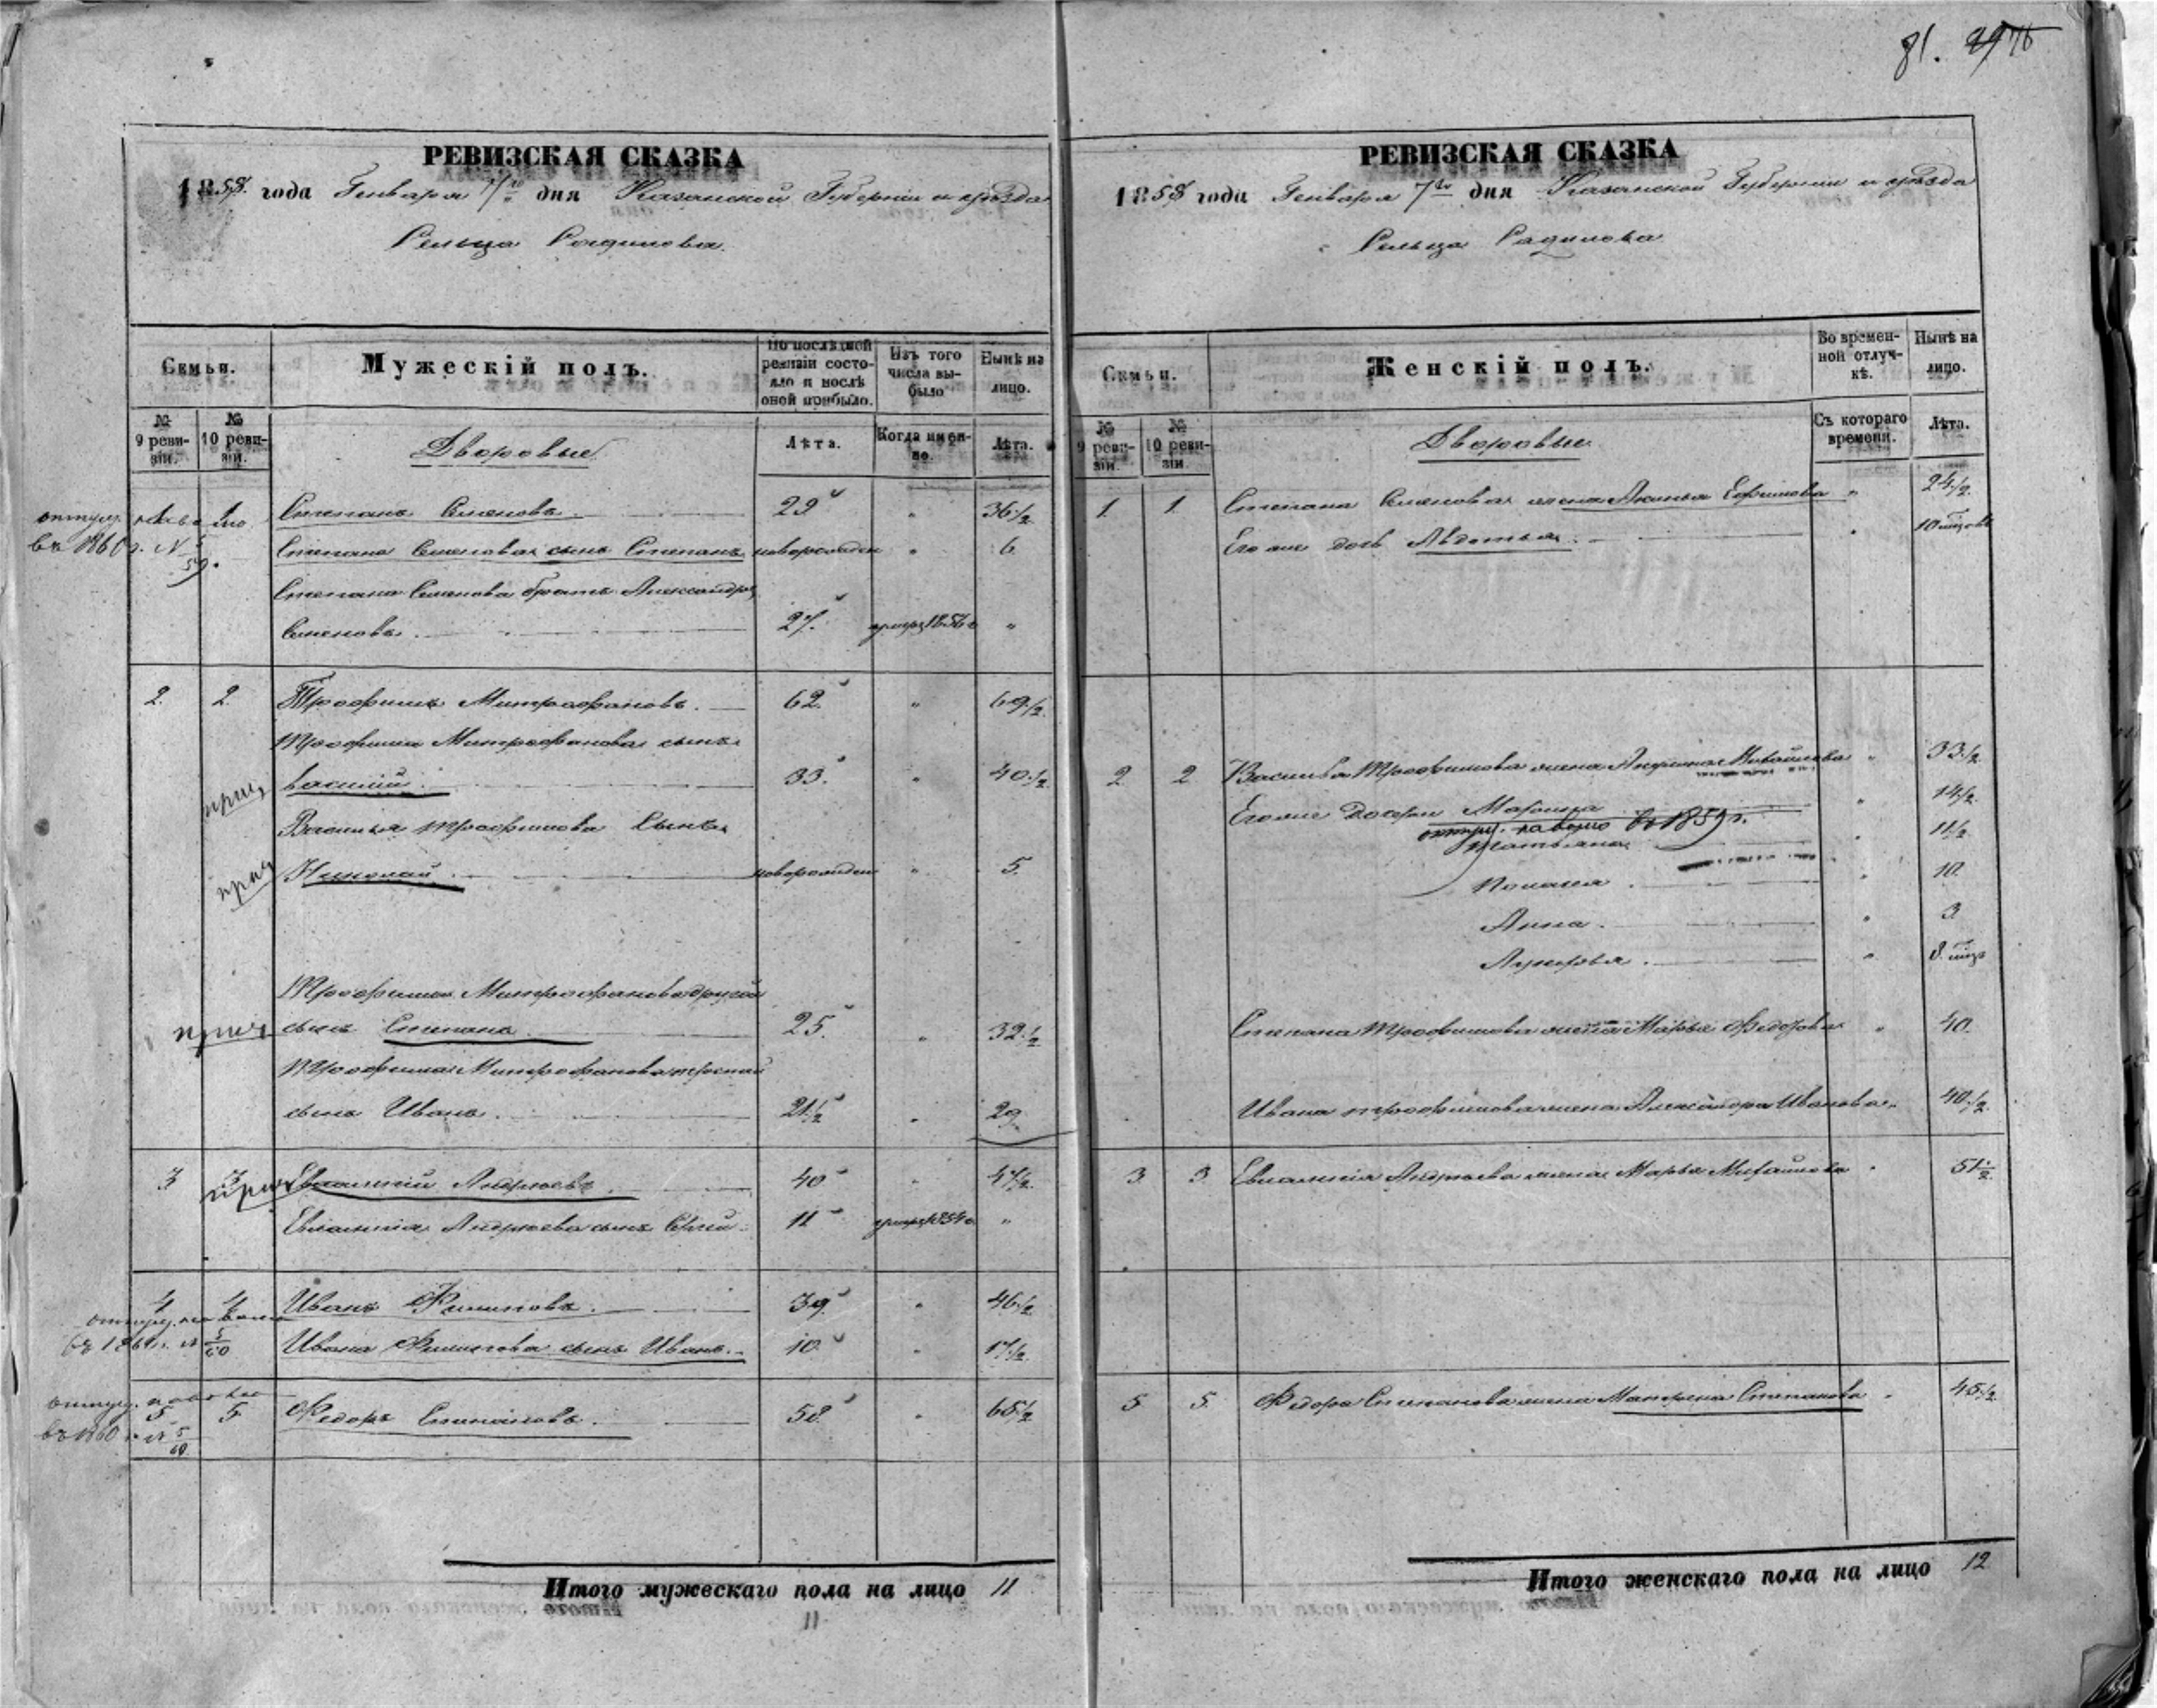 81.
РЕВИЗСКАЯ СКАЗКА
1858 года Генваря 7го дня Казанской Губернии и уѣзда
Сельца
Семьи.
Мужескій полъ.
По послѣдней ревизіи состояло и послѣ оной прибыло.
Изъ того числа выбыло
Нынѣ на лицо.
№ 9 ревизіи.
№ 10 ревизіи.
Дворовые
Лѣта.
Когда именно.
Лѣта.
Степанъ Семеновъ. 29 " 36½
въ 1860 г. №
Степана Семенова сынъ Степанъ новорожден " 6
Степана Семенова братъ Александръ
Семеновъ. 27. 1856 "
2. 2. Трофимъ Митрофановъ. 62. " 69½
Трофима Митрофанова сынъ
Василій. 33. " 40½
Василья Трофимова сынъ
Николай. новорожден " 5.
Трофима Митрофанова другой
сынъ Степанъ 25. " 32½
Трофима Митрофанова третій
сынъ Иванъ. 21½ " 29
3 3 Евлампій Андреевъ. 40 " 47½
Евлампія Андреева сынъ Сергій 11 1854 "
4 4 Иванъ Филиповъ. 39. " 46½
отпущ. на волю
Ивана Филипова сынъ Иванъ. 10 " 17½
отпущ. на волю
5 5 Федоръ Степановъ. 58. " 65½
въ 1860 г. №
Итого мужескаго пола на лицо 11
11
РЕВИЗСКАЯ СКАЗКА
1858 года Генваря 7го дня Казанской Губерніи и уѣзда
Сельца
Семьи.
Женскій полъ.
Во временной отлучкѣ.
Нынѣ на лицо.
№ 9 ревизіи.
№ 10 ревизіи.
Дворовые
Съ котораго времени.
Лѣта.
1. 1. Степана Семенова жена Акинья Ефимова " 24½
Его же дочь Авдотья. " 10
2 2 Василья Трофимова жена Михайлова " 33½
Его же дочери Марина " 14½
отпущ. на волю въ 1859 г.
Татьяна " 11½
" 10.
Анна. " 3
Лукерья. " 8
Степана Трофимова жена Марья Федорова " 40.
Ивана Трофимова жена Александра Иванова " 40½
3 3 Евлампія Андреева жена Марья Михайлова " 51½
5 5. Федора Степанова жена Матрена Степанова " 45½
Итого женскаго пола на лицо 12